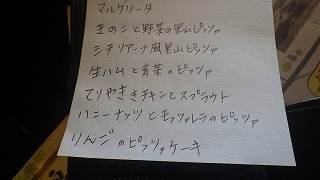 マルゲリータ
きのこと野菜の里山ピッツァ
シチリアーナ風里山ピッツァ
生ハムと青菜のピッツァ
てりやききチキンとスプラウト
ハニーナッツとモッツァレラのピッツァ
りんごのピッツァケーキ